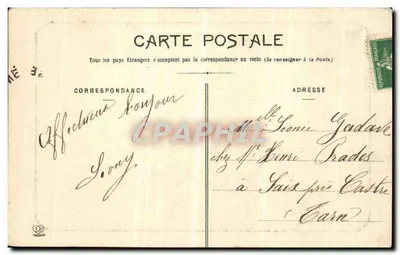 CARTE POSTALE
Tous les pays Etrangers n'acceptent pas la correspondance au recto (Se renseigner à la Poste)
CORRESPONDANCE
ADRESSE
Affectueux bonjour
Mlle Léonie Gadave
chez Mr Henri Prades
à Saix près Castres
Tarn
CPARAMA